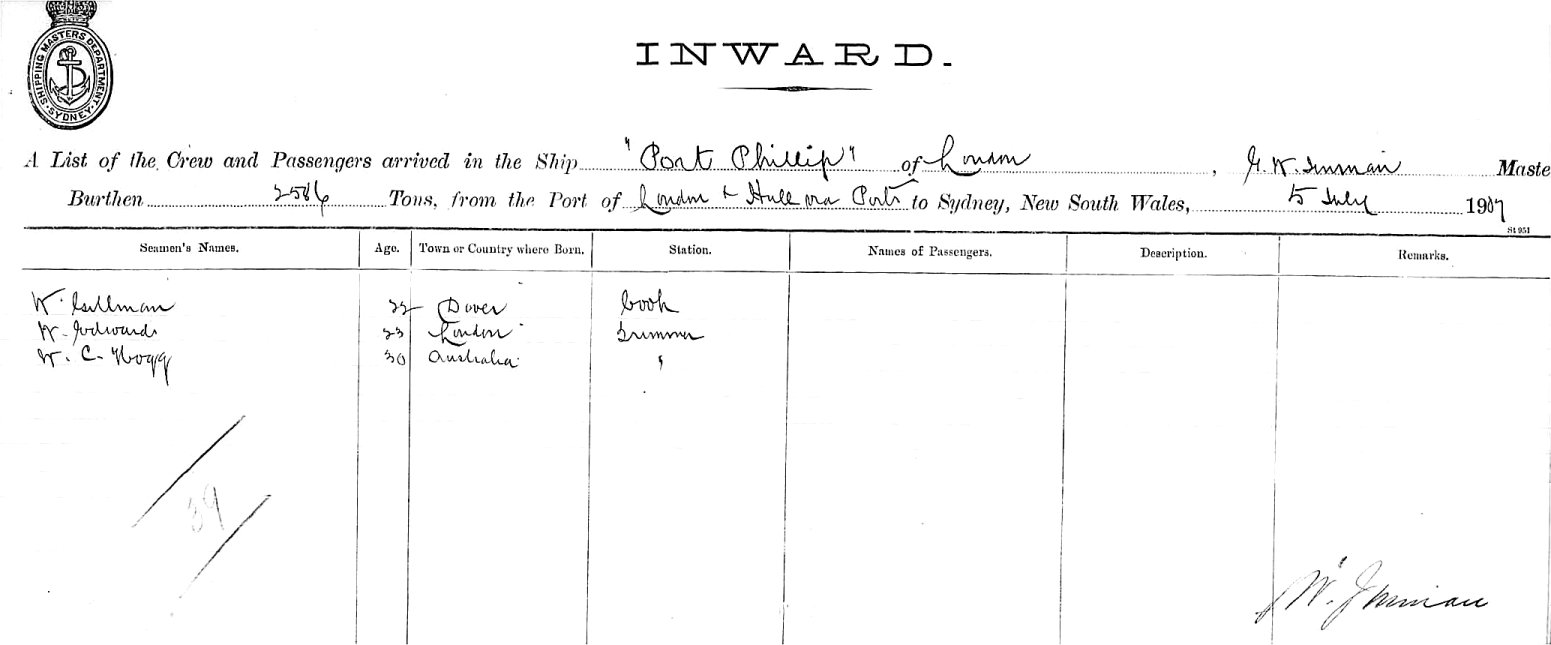 SHIPPING MASTERS DEPARTMENT · SYDNEY ·
INWARD.
A List of the Crew and Passengers arrived in the Ship "Port Phillip" of London, G. W. Inman Maste
Burthen 2586 Tons, from the Port of London & Hull via Ports to Sydney, New South Wales, 5 July 1907
St 951
Seamen's Names. Age. Town or Country where Born. Station. Names of Passengers. Description. Remarks.
W. Cullman 22 Dover Cook
W. Edwards 23 London Trimmer
W. C. Hogg 30 Australia "
39
W. Inman